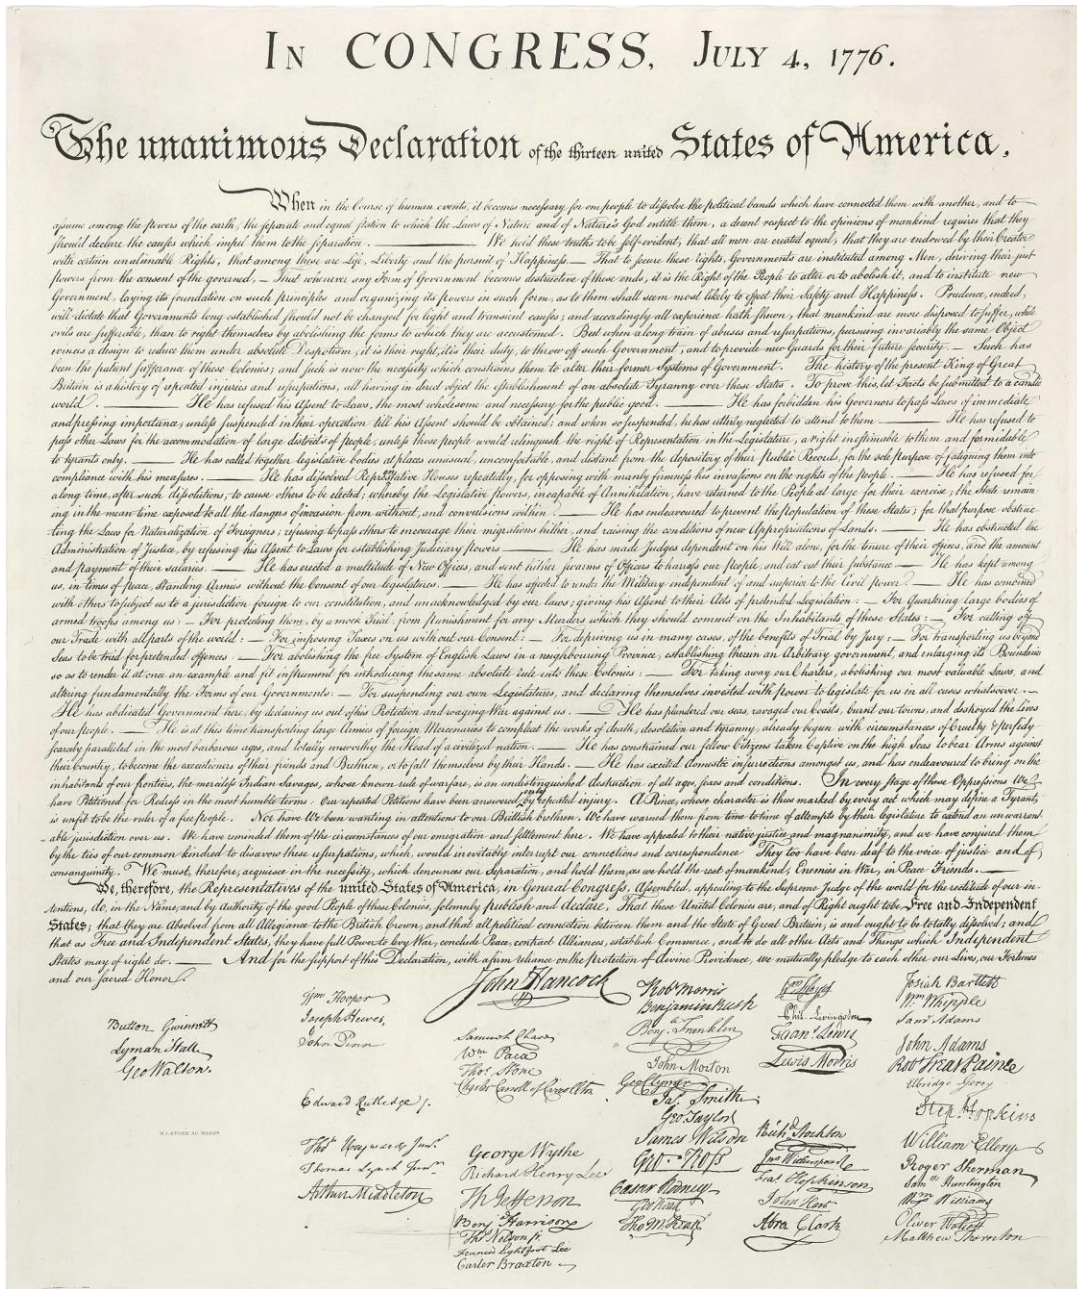 IN CONGRESS, JULY 4, 1776.
The unanimous Declaration of the thirteen united States of America,
When in the Course of human events, it becomes necessary for one people to dissolve the political bands which have connected them with another, and to
assume among the powers of the earth, the separate and equal station to which the Laws of Nature and of Nature's God entitle them, a decent respect to the opinions of mankind requires that they
should declare the causes which impel them to the separation. — We hold these truths to be self-evident, that all men are created equal, that they are endowed by their Creator
with certain unalienable Rights, that among these are Life, Liberty and the pursuit of Happiness. — That to secure these rights, Governments are instituted among Men, deriving their just
powers from the consent of the governed, — That whenever any Form of Government becomes destructive of these ends, it is the Right of the People to alter or to abolish it, and to institute new
Government, laying its foundation on such principles and organizing its powers in such form, as to them shall seem most likely to effect their Safety and Happiness. Prudence, indeed,
will dictate that Governments long established should not be changed for light and transient causes; and accordingly all experience hath shewn, that mankind are more disposed to suffer, while
evils are sufferable, than to right themselves by abolishing the forms to which they are accustomed. But when a long train of abuses and usurpations, pursuing invariably the same Object
evinces a design to reduce them under absolute Despotism, it is their right, it is their duty, to throw off such Government, and to provide new Guards for their future security. — Such has
been the patient sufferance of these Colonies; and such is now the necessity which constrains them to alter their former Systems of Government. The history of the present King of Great
Britain is a history of repeated injuries and usurpations, all having in direct object the establishment of an absolute Tyranny over these States. To prove this, let Facts be submitted to a candid
world. — He has refused his Assent to Laws, the most wholesome and necessary for the public good. — He has forbidden his Governors to pass Laws of immediate
and pressing importance, unless suspended in their operation till his Assent should be obtained; and when so suspended, he has utterly neglected to attend to them. — He has refused to
pass other Laws for the accommodation of large districts of people, unless those people would relinquish the right of Representation in the Legislature, a right inestimable to them and formidable
to tyrants only. — He has called together legislative bodies at places unusual, uncomfortable, and distant from the depository of their Public Records, for the sole purpose of fatiguing them into
compliance with his measures. — He has dissolved Representative Houses repeatedly, for opposing with manly firmness his invasions on the rights of the people. — He has refused for
a long time, after such dissolutions, to cause others to be elected; whereby the Legislative powers, incapable of Annihilation, have returned to the People at large for their exercise; the State remain-
ing in the mean time exposed to all the dangers of invasion from without, and convulsions within. — He has endeavoured to prevent the population of these States; for that purpose obstruc-
ting the Laws for Naturalization of Foreigners; refusing to pass others to encourage their migrations hither, and raising the conditions of new Appropriations of Lands. — He has obstructed the
Administration of Justice, by refusing his Assent to Laws for establishing Judiciary powers. — He has made Judges dependent on his Will alone, for the tenure of their offices, and the amount
and payment of their salaries. — He has erected a multitude of New Offices, and sent hither swarms of Officers to harrass our people, and eat out their substance. — He has kept among
us, in times of peace, Standing Armies without the Consent of our legislatures. — He has affected to render the Military independent of and superior to the Civil power. — He has combined
with others to subject us to a jurisdiction foreign to our constitution, and unacknowledged by our laws; giving his Assent to their Acts of pretended Legislation: — For quartering large bodies of
armed troops among us: — For protecting them, by a mock Trial, from punishment for any Murders which they should commit on the Inhabitants of these States: — For cutting off
our Trade with all parts of the world: — For imposing Taxes on us without our Consent: — For depriving us in many cases, of the benefits of Trial by Jury: — For transporting us beyond
Seas to be tried for pretended offences — For abolishing the free System of English Laws in a neighbouring Province, establishing therein an Arbitrary government, and enlarging its Boundaries
so as to render it at once an example and fit instrument for introducing the same absolute rule into these Colonies: — For taking away our Charters, abolishing our most valuable Laws, and
altering fundamentally the Forms of our Governments: — For suspending our own Legislatures, and declaring themselves invested with power to legislate for us in all cases whatsoever. —
He has abdicated Government here, by declaring us out of his Protection and waging War against us. — He has plundered our seas, ravaged our Coasts, burnt our towns, and destroyed the Lives
of our people. — He is at this time transporting large Armies of foreign Mercenaries to compleat the works of death, desolation and tyranny, already begun with circumstances of Cruelty & perfidy
scarcely paralleled in the most barbarous ages, and totally unworthy the Head of a civilized nation. — He has constrained our fellow Citizens taken Captive on the high Seas to bear Arms against
their Country, to become the executioners of their friends and Brethren, or to fall themselves by their Hands. — He has excited domestic insurrections amongst us, and has endeavoured to bring on the
inhabitants of our frontiers, the merciless Indian Savages, whose known rule of warfare, is an undistinguished destruction of all ages, sexes and conditions. In every stage of these Oppressions We
have Petitioned for Redress in the most humble terms: Our repeated Petitions have been answered only by repeated injury. A Prince, whose character is thus marked by every act which may define a Tyrant,
is unfit to be the ruler of a free people. Nor have We been wanting in attentions to our Brittish brethren. We have warned them from time to time of attempts by their legislature to extend an unwarrant-
able jurisdiction over us. We have reminded them of the circumstances of our emigration and settlement here. We have appealed to their native justice and magnanimity, and we have conjured them
by the ties of our common kindred to disavow these usurpations, which, would inevitably interrupt our connections and correspondence They too have been deaf to the voice of justice and of
consanguinity. We must, therefore, acquiesce in the necessity, which denounces our Separation, and hold them, as we hold the rest of mankind, Enemies in War, in Peace Friends. —
We, therefore, the Representatives of the united States of America, in General Congress, Assembled, appealing to the Supreme Judge of the world for the rectitude of our in-
tentions, do, in the Name, and by Authority of the good People of these Colonies, solemnly publish and declare, That these United Colonies are, and of Right ought to be Free and Independent
States; that they are Absolved from all Allegiance to the British Crown, and that all political connection between them and the State of Great Britain, is and ought to be totally dissolved; and
that as Free and Independent States, they have full Power to levy War, conclude Peace, contract Alliances, establish Commerce, and to do all other Acts and Things which Independent
States may of right do. — And for the support of this Declaration, with a firm reliance on the protection of divine Providence, we mutually pledge to each other our Lives, our Fortunes
and our sacred Honor.
Button Gwinnett
Lyman Hall
Geo Walton.
Wm Hooper
Joseph Hewes,
John Penn
Edward Rutledge /.
Thos Heyward Junr.
Thomas Lynch Junr.
Arthur Middleton
John Hancock
Samuel Chase
Wm Paca
Thos Stone
Charles Carroll of Carrollton
George Wythe
Richard Henry Lee
Th Jefferson
Benj Harrison
Thos Nelson jr.
Francis Lightfoot Lee
Carter Braxton
Robt Morris
Benjamin Rush
Benj. Franklin
John Morton
Geo Clymer
Jas. Smith
Geo. Taylor
James Wilson
Geo. Ross
Caesar Rodney
Geo Read
Tho M:Kean
Wm Floyd
Phil. Livingston
Frans. Lewis
Lewis Morris
Richd. Stockton
Jno Witherspoon
Fras. Hopkinson
John Hart
Abra Clark
Josiah Bartlett
Wm. Whipple
Saml Adams
John Adams
Robt Treat Paine
Elbridge Gerry
Step. Hopkins
William Ellery
Roger Sherman
Saml Huntington
Wm Williams
Oliver Wolcott
Matthew Thornton
W.J. STONE SC. WASHN